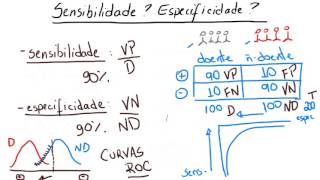 Sensibilidade? Especificidade?
doente ñ-doente
- sensibilidade: VP
90% D
- especificidade: VN
90% ND
⊕ 90 VP 10 FP
⊖ 10 FN 90 VN T
100 D 100 ND 200
D ND CURVAS
ROC
espec
sens
⊕ ⊖